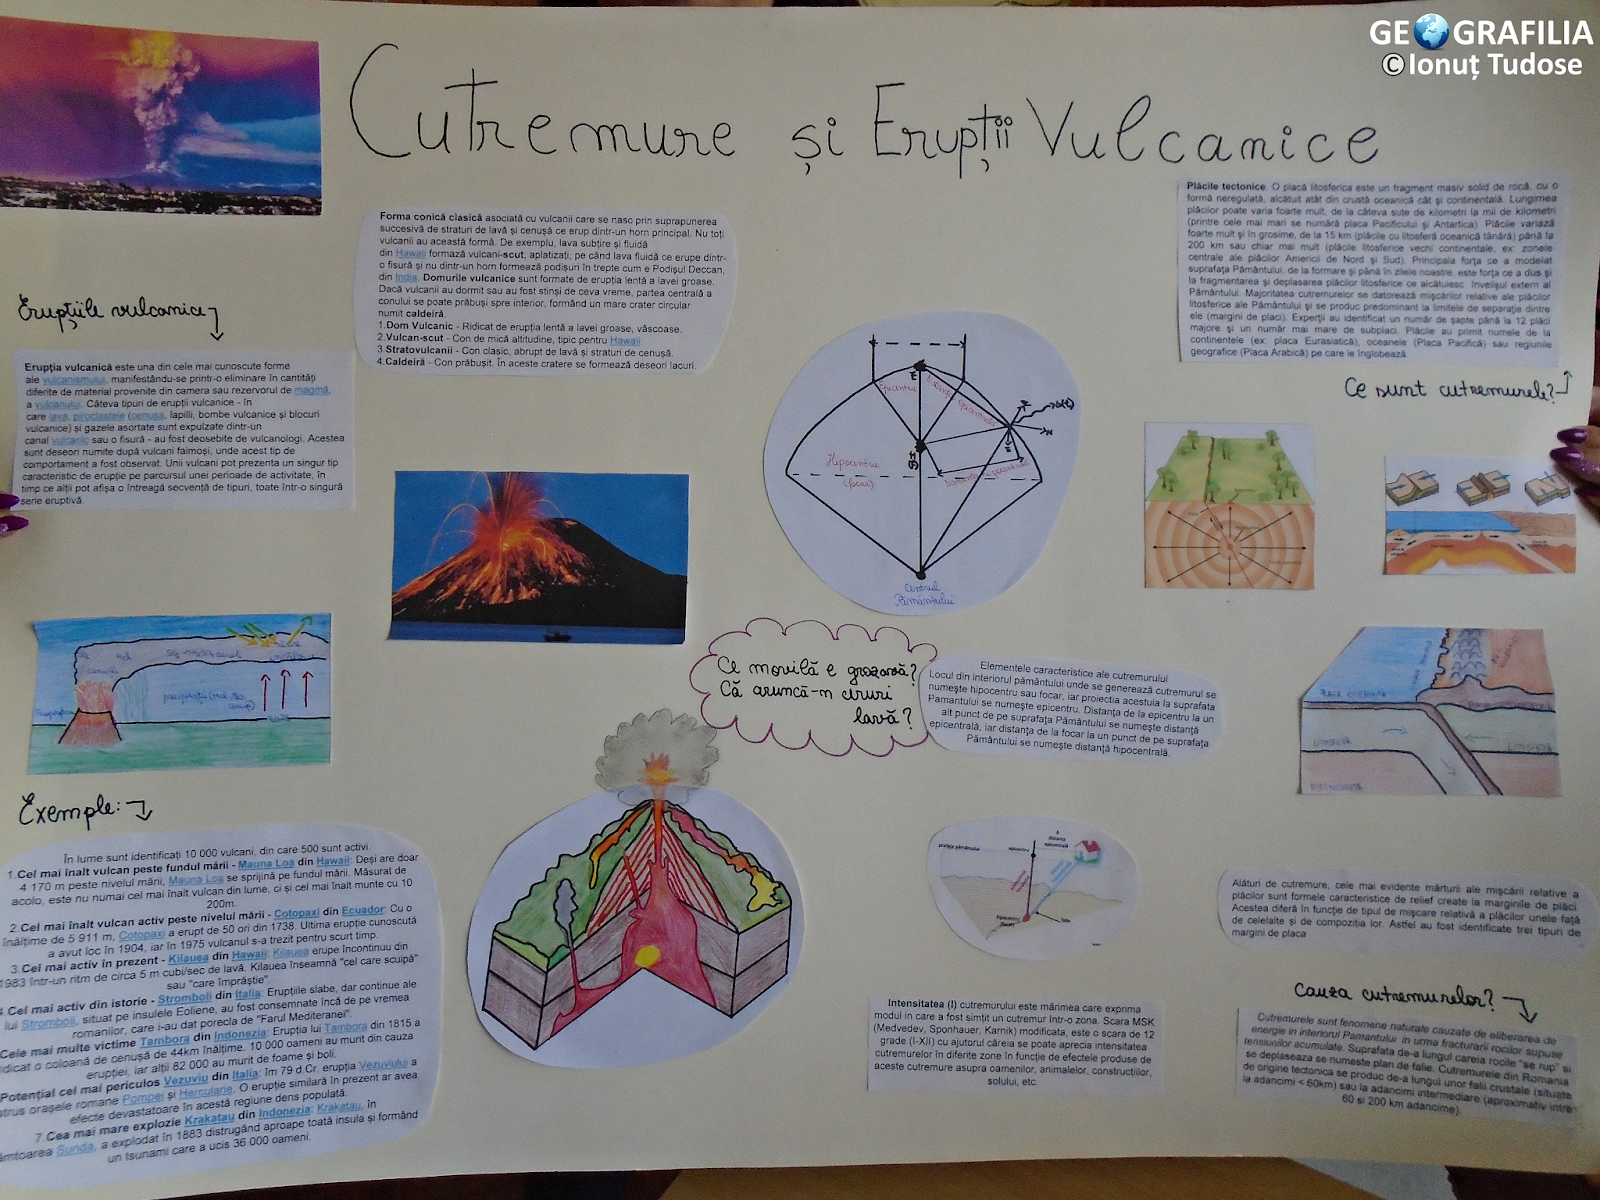 GEOGRAFILIA
©Ionuț Tudose
Cutremure și Erupții Vulcanice
Forma conică clasică asociată cu vulcanii care se nasc prin suprapunerea
succesivă de straturi de lavă și cenușă ce erup dintr-un horn principal. Nu toți
vulcanii au această formă. De exemplu, lava subțire și fluidă
din Hawaii formază vulcani-scut, aplatizați, pe când lava fluidă ce erupe dintr-
o fisură și nu dintr-un horn formează podișuri în trepte cum e Podișul Deccan,
din India. Domurile vulcanice sunt formate de erupția lentă a lavei groase.
Dacă vulcanii au dormit sau au fost stinși de ceva vreme, partea centrală a
conului se poate prăbuși spre interior, formând un mare crater circular
numit caldeiră.
1.Dom Vulcanic - Ridicat de erupția lentă a lavei groase, vâscoase.
2.Vulcan-scut - Con de mică altitudine, tipic pentru Hawaii
3.Stratovulcanii - Con clasic, abrupt de lavă și straturi de cenușă.
4.Caldeiră - Con prăbușit. În aceste cratere se formează deseori lacuri.
Plăcile tectonice. O placă litosferica este un fragment masiv solid de rocă, cu o
formă neregulată, alcătuit atât din crustă oceanică cât și continentală. Lungimea
plăcilor poate varia foarte mult, de la câteva sute de kilometri la mii de kilometri
(printre cele mai mari se numără placa Pacificului și Antartica). Plăcile variază
foarte mult și în grosime, de la 15 km (plăcile cu litosferă oceanică tânără) până la
200 km sau chiar mai mult (plăcile litosferice vechi continentale, ex: zonele
centrale ale plăcilor Americii de Nord și Sud). Principala forța ce a modelat
suprafața Pământului, de la formare și până în zilele noastre, este forța ce a dus și
la fragmentarea și deplasarea plăcilor litosferice ce alcătuiesc învelișul extern al
Pământului. Majoritatea cutremurelor se datorează mișcărilor relative ale plăcilor
litosferice ale Pământului și se produc predominant la limitele de separație dintre
ele (margini de placi). Experții au identificat un număr de șapte până la 12 plăci
majore și un număr mai mare de subplaci. Plăcile au primit numele de la
continentele (ex: placa Eurasiatică), oceanele (Placa Pacifică) sau regiunile
geografice (Placa Arabică) pe care le înglobează.
Erupțiile vulcanice
Erupția vulcanică este una din cele mai cunoscute forme
ale vulcanismului, manifestându-se printr-o eliminare în cantități
diferite de material provenite din camera sau rezervorul de magmă,
a vulcanului. Câteva tipuri de erupții vulcanice - în
care lava, piroclastele (cenușa, lapilli, bombe vulcanice și blocuri
vulcanice) și gazele asortate sunt expulzate dintr-un
canal vulcanic sau o fisură - au fost deosebite de vulcanologi. Acestea
sunt deseori numite după vulcani faimoși, unde acest tip de
comportament a fost observat. Unii vulcani pot prezenta un singur tip
caracteristic de erupție pe parcursul unei perioade de activitate, în
timp ce alții pot afișa o întreagă secvență de tipuri, toate într-o singură
serie eruptivă.
Ce sunt cutremurele?
Epicentru
Hipocentru
(focar)
Centrul
Pământului
Ce movilă e grozavă?
Că aruncă-n cruri
lavă?
Elementele caracteristice ale cutremurului
Locul din interiorul pământului unde se generează cutremurul se
numește hipocentru sau focar, iar proiectia acestuia la suprafata
Pamantului se numește epicentru. Distanța de la epicentru la un
alt punct de pe suprafața Pământului se numește distanță
epicentrală, iar distanta de la focar la un punct de pe suprafața
Pământului se numește distanță hipocentrală.
Exemple:
În lume sunt identificați 10 000 vulcani, din care 500 sunt activi.
1.Cel mai înalt vulcan peste fundul mării - Mauna Loa din Hawaii: Deși are doar
4 170 m peste nivelul mării, Mauna Loa se sprijină pe fundul mării. Măsurat de
acolo, este nu numai cel mai înalt vulcan din lume, ci și cel mai înalt munte cu 10
200m.
2.Cel mai înalt vulcan activ peste nivelul mării - Cotopaxi din Ecuador: Cu o
înălțime de 5 911 m, Cotopaxi a erupt de 50 ori din 1738. Ultima erupție cunoscută
a avut loc în 1904, iar în 1975 vulcanul s-a trezit pentru scurt timp.
3.Cel mai activ în prezent - Kilauea din Hawaii: Kilauea erupe încontinuu din
1983 într-un ritm de circa 5 m cubi/sec de lavă. Kilauea înseamnă "cel care scuipă"
sau "care împrăștie".
Cel mai activ din istorie - Stromboli din Italia: Erupțiile slabe, dar continue ale
lui Stromboli, situat pe insulele Eoliene, au fost consemnate încă de pe vremea
romanilor, care i-au dat porecla de "Farul Mediteranei".
Cele mai multe victime Tambora din Indonezia: Erupția lui Tambora din 1815 a
ridicat o coloană de cenușă de 44km înălțime. 10 000 oameni au murit din cauza
erupției, iar alții 82 000 au murit de foame și boli.
Potențial cel mai periculos Vezuviu din Italia: Îm 79 d.Cr. erupția Vezuviului a
orașele romane Pompei și Herculane. O erupție similară în prezent ar avea
efecte devastatoare în acestă regiune dens populată.
7.Cea mai mare explozie Krakatau din Indonezia: Krakatau, în
Sunda, a explodat în 1883 distrugând aproape toată insula și formând
un tsunami care a ucis 36 000 oameni.
epicentru
hipocentru
Intensitatea (I) cutremurului este mărimea care exprima
modul in care a fost simțit un cutremur într-o zona. Scara MSK
(Medvedev, Sponhauer, Karnik) modificata, este o scara de 12
grade (I-XII) cu ajutorul căreia se poate aprecia intensitatea
cutremurelor în diferite zone în funcție de efectele produse de
aceste cutremure asupra oamenilor, animalelor, construcțiilor,
solului, etc.
Alături de cutremure, cele mai evidente mărturii ale mișcării relative a
plăcilor sunt formele caracteristice de relief create la marginile de plăci.
Acestea diferă în funcție de tipul de mișcare relativă a plăcilor unele față
de celelalte și de compoziția lor. Astfel au fost identificate trei tipuri de
margini de placa
Cauza cutremurelor?
Cutremurele sunt fenomene naturale cauzate de eliberarea de
energie in interiorul Pamantului in urma fracturarii rocilor supuse
tensiunilor acumulate. Suprafata de-a lungul careia rocile "se rup" si
se deplaseaza se numeste plan de falie. Cutremurele din Romania
de origine tectonica se produc de-a lungul unor falii crustale (situate
la adancimi < 60km) sau la adancimi intermediare (aproximativ intre
60 si 200 km adancime).